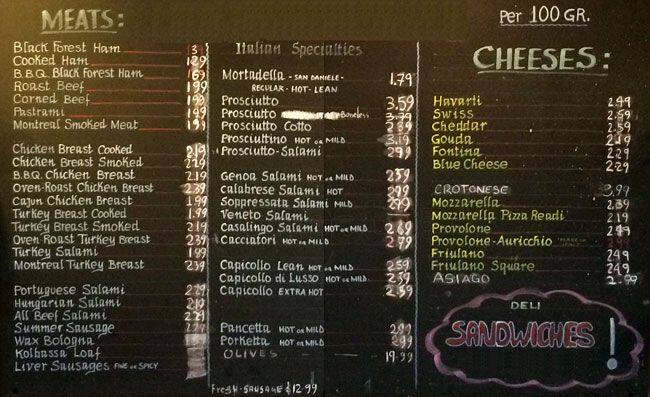 MEATS:
Black Forest Ham
Cooked Ham 1.29
B.B.Q. Black Forest Ham 1.69
Roast Beef 1.99
Corned Beef 1.99
Pastrami 1.99
Montreal Smoked Meat 1.99
Chicken Breast Cooked 2.19
Chicken Breast Smoked 2.19
B.B.Q. Chicken Breast 2.19
Oven-Roast Chicken Breast 2.39
Cajun Chicken Breast 1.99
Turkey Breast Cooked 1.99
Turkey Breast Smoked 2.19
Oven Roast Turkey Breast 2.39
Turkey Salami 1.99
Montreal Turkey Breast 2.39
Portuguese Salami 2.29
Hungarian Salami 2.19
All Beef Salami 2.29
Summer Sausage 2.29
Wax Bologna
Kolbassa Loaf
Liver Sausages FINE OR SPICY
Italian Specialties
Mortadella - SAN DANIELE - 1.79
REGULAR - HOT - LEAN
Prosciutto 3.59
Prosciutto Boneless 3.79
Prosciutto Cotto 2.39
Prosciuttino HOT OR MILD 3.19
Prosciutto-Salami 2.99
Genoa Salami HOT OR MILD 2.39
Calabrese Salami HOT 2.99
Soppressata Salami MILD 2.99
Veneto Salami
Casalingo Salami HOT OR MILD 2.69
Cacciatori HOT OR MILD 2.79
Capicollo Lean HOT OR MILD 2.59
Capicollo di Lusso HOT OR MILD 2.39
Capicollo EXTRA HOT 2.59
Pancetta HOT OR MILD 2.99
Porketta HOT OR MILD 2.99
OLIVES 19.99
Fresh-SAUSAGE $12.99
Per 100 GR.
CHEESES:
Havarti 2.49
Swiss 2.59
Cheddar 2.59
Gouda 2.19
Fontina 2.29
Blue Cheese 2.29
CROTONESE 3.99
Mozzarella 2.39
Mozzarella Pizza Readi 2.19
Provolone 2.49
Provolone-Auricchio
Friulano 2.49
Friulano Square 2.49
ASIAGO 2.99
DELI
SANDWICHES!